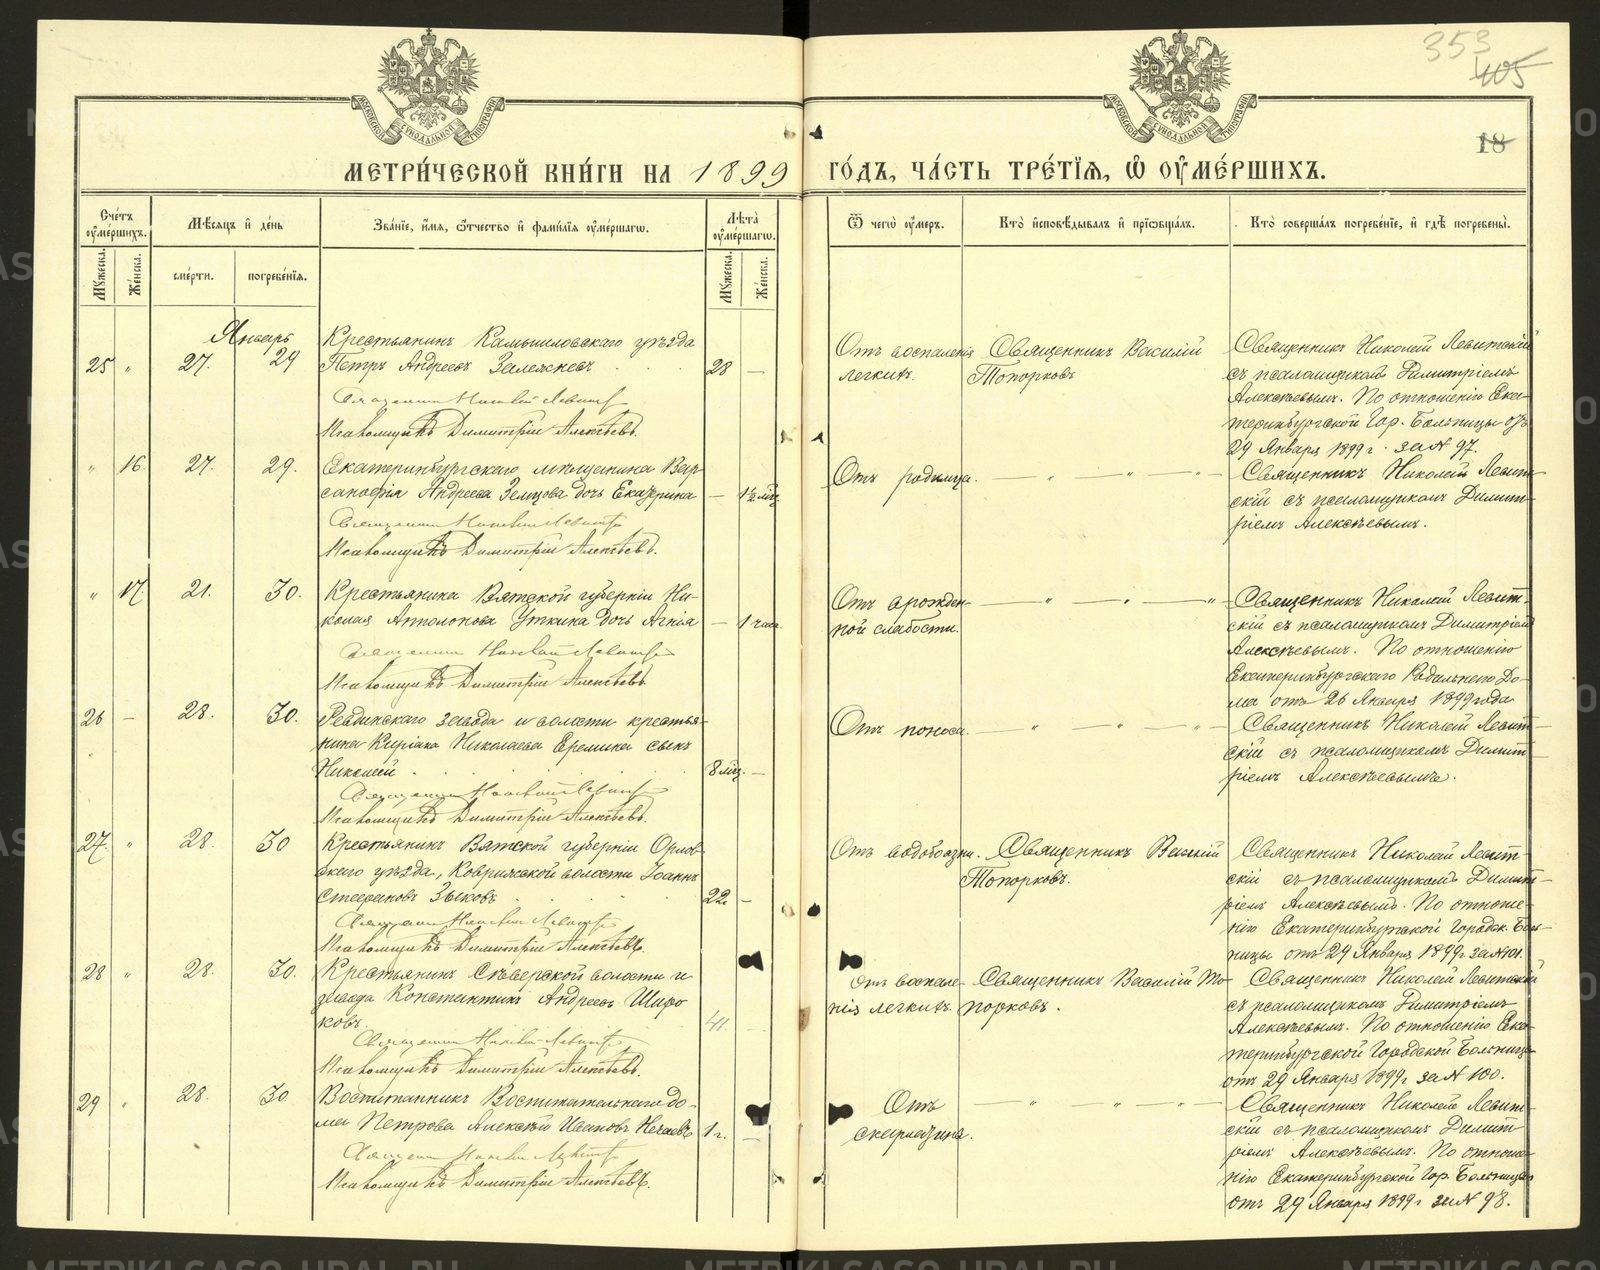 353
405
18
МЕТРИ́ЧЕСКОЙ КНИ́ГИ НА 1899
ГО́ДЪ, ЧА́СТЬ ТРЕ́ТІЯ, Ѡ҆ ОУ҆МЕ́РШИХЪ.
Сче́тъ оу҆ме́ршихъ.
Мѣ́сяцъ и҆ де́нь
Зва́ніе, и҆́мя, ѻ҆́тчество и҆ фами́лія оу҆ме́ршагѡ.
Лѣта̀ оу҆ме́ршагѡ.
Ѿ чегѡ̀ оу҆́меръ.
Кто̀ и҆сповѣ́дывалъ и҆ прїѡбща́лъ.
Кто̀ соверша́лъ погребе́ніе, и҆ гдѣ̀ погребены̀.
Му́жеска.
Же́нска.
сме́рти.
погребе́нія.
Му́жеска.
Же́нска.
Январь
25 " 27. 29
Крестьянинъ Камышловскаго уѣзда
Петръ Андреевъ Залежневъ 28 —
Священникъ Николай Левитскій
Псаломщикъ Димитрій Алексѣевъ.
Отъ воспаленія
легкихъ.
Священникъ Василій
Топорковъ
Священникъ Николай Левитскій
съ псаломщикомъ Димитріемъ
Алексѣевымъ. По отношенію Ека-
теринбургской Гор. Больницы отъ
29 Января 1899 г. за № 97.
" 16. 27. 29.
Екатеринбургскаго мѣщанина Вар-
санофія Андреева Земцова дочь Екатерина — 1½ мѣц.
Священникъ Николай Левитскій
Псаломщикъ Димитрій Алексѣевъ.
Отъ родимца. — " — " — "
Священникъ Николай Левит-
скій съ псаломщикомъ Димит-
ріемъ Алексѣевымъ.
" 17. 21. 30.
Крестьянина Вятской губерніи Ни-
колая Апполонова Уткина дочь Агнія — 1 часа
Священникъ Николай Левитскій
Псаломщикъ Димитрій Алексѣевъ
Отъ врожден-
ной слабости.
— " — " — "
Священникъ Николай Левит-
скій съ псаломщикомъ Димитріемъ
Алексѣевымъ. По отношенію
Екатеринбургскаго Родильнаго До-
ма отъ 26 Января 1899 года
26 — 28. 30.
Ревдинскаго завода и волости крестья-
нина Киріака Николаева Еремина сынъ
Николай 8 мѣц. —
Священникъ Николай Левитскій
Псаломщикъ Димитрій Алексѣевъ.
Отъ поноса. — " — " — "
Священникъ Николай Левит-
скій съ псаломщикомъ Димит-
ріемъ Алексѣевымъ.
27. " 28. 30
Крестьянинъ Вятской губерніи Орлов-
скаго уѣзда, волости Іоаннъ
Стефановъ Зыковъ 22. —
Священникъ Николай Левитскій
Псаломщикъ Димитрій Алексѣевъ
Отъ водобоязни.
Священникъ Василій
Топорковъ.
Священникъ Николай Левит-
скій съ псаломщикомъ Димит-
ріемъ Алексѣевымъ. По отноше-
нію Екатеринбургской Городск. Боль-
ницы отъ 29 Января 1899 г. за № 101.
28 " 28. 30.
Крестьянинъ Сѣверской волости и
завода Константинъ Андреевъ Широ-
ковъ. 41.
Священникъ Николай Левитскій
Псаломщикъ Димитрій Алексѣевъ.
Отъ воспале-
нія легкихъ.
Священникъ Василій То-
порковъ.
Священникъ Николай Левитскій
съ псаломщикомъ Димитріемъ
Алексѣевымъ. По отношенію Ека-
теринбургской Городской Больницы
отъ 29 Января 1899 г за № 100.
29 " 28. 30
Воспитанникъ Воспитательнаго до-
ма Петрова Алексѣй Ивановъ Нечаевъ 1 г. —
Священникъ Николай Левитскій
Псаломщикъ Димитрій Алексѣевъ.
Отъ
скарлатина.
— " — " — "
Священникъ Николай Левит-
скій съ псаломщикомъ Димит-
ріемъ Алексѣевымъ. По отноше-
нію Екатеринбургской Гор. Больницы
отъ 29 Января 1899 г за № 98.